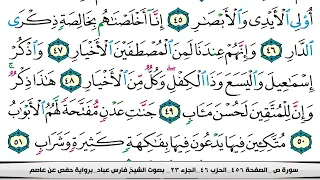 أُو۟لِى ٱلْأَيْدِى وَٱلْأَبْصَٰرِ ٤٥ إِنَّآ أَخْلَصْنَٰهُم بِخَالِصَةٍ ذِكْرَى
ٱلدَّارِ ٤٦ وَإِنَّهُمْ عِندَنَا لَمِنَ ٱلْمُصْطَفَيْنَ ٱلْأَخْيَارِ ٤٧ وَٱذْكُرْ
إِسْمَٰعِيلَ وَٱلْيَسَعَ وَذَا ٱلْكِفْلِ وَكُلٌّ مِّنَ ٱلْأَخْيَارِ ٤٨ هَٰذَا ذِكْرٌ
وَإِنَّ لِلْمُتَّقِينَ لَحُسْنَ مَـَٔابٍ ٤٩ جَنَّٰتِ عَدْنٍ مُّفَتَّحَةً لَّهُمُ ٱلْأَبْوَٰبُ
٥٠ مُتَّكِـِٔينَ فِيهَا يَدْعُونَ فِيهَا بِفَٰكِهَةٍ كَثِيرَةٍ وَشَرَابٍ ٥١
سورة ص _ الصفحة ٤٥٦ _ الحزب ٤٦ _ الجزء ٢٣ _ بصوت الشيخ فارس عباد _ برواية حفص عن عاصم